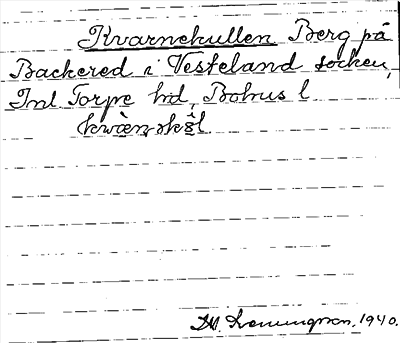 Kvarnekullen Berg på
Backered i Vesteland socken,
Inl Torpe hd, Bohus l
kwàṇəkə̂l
1940.